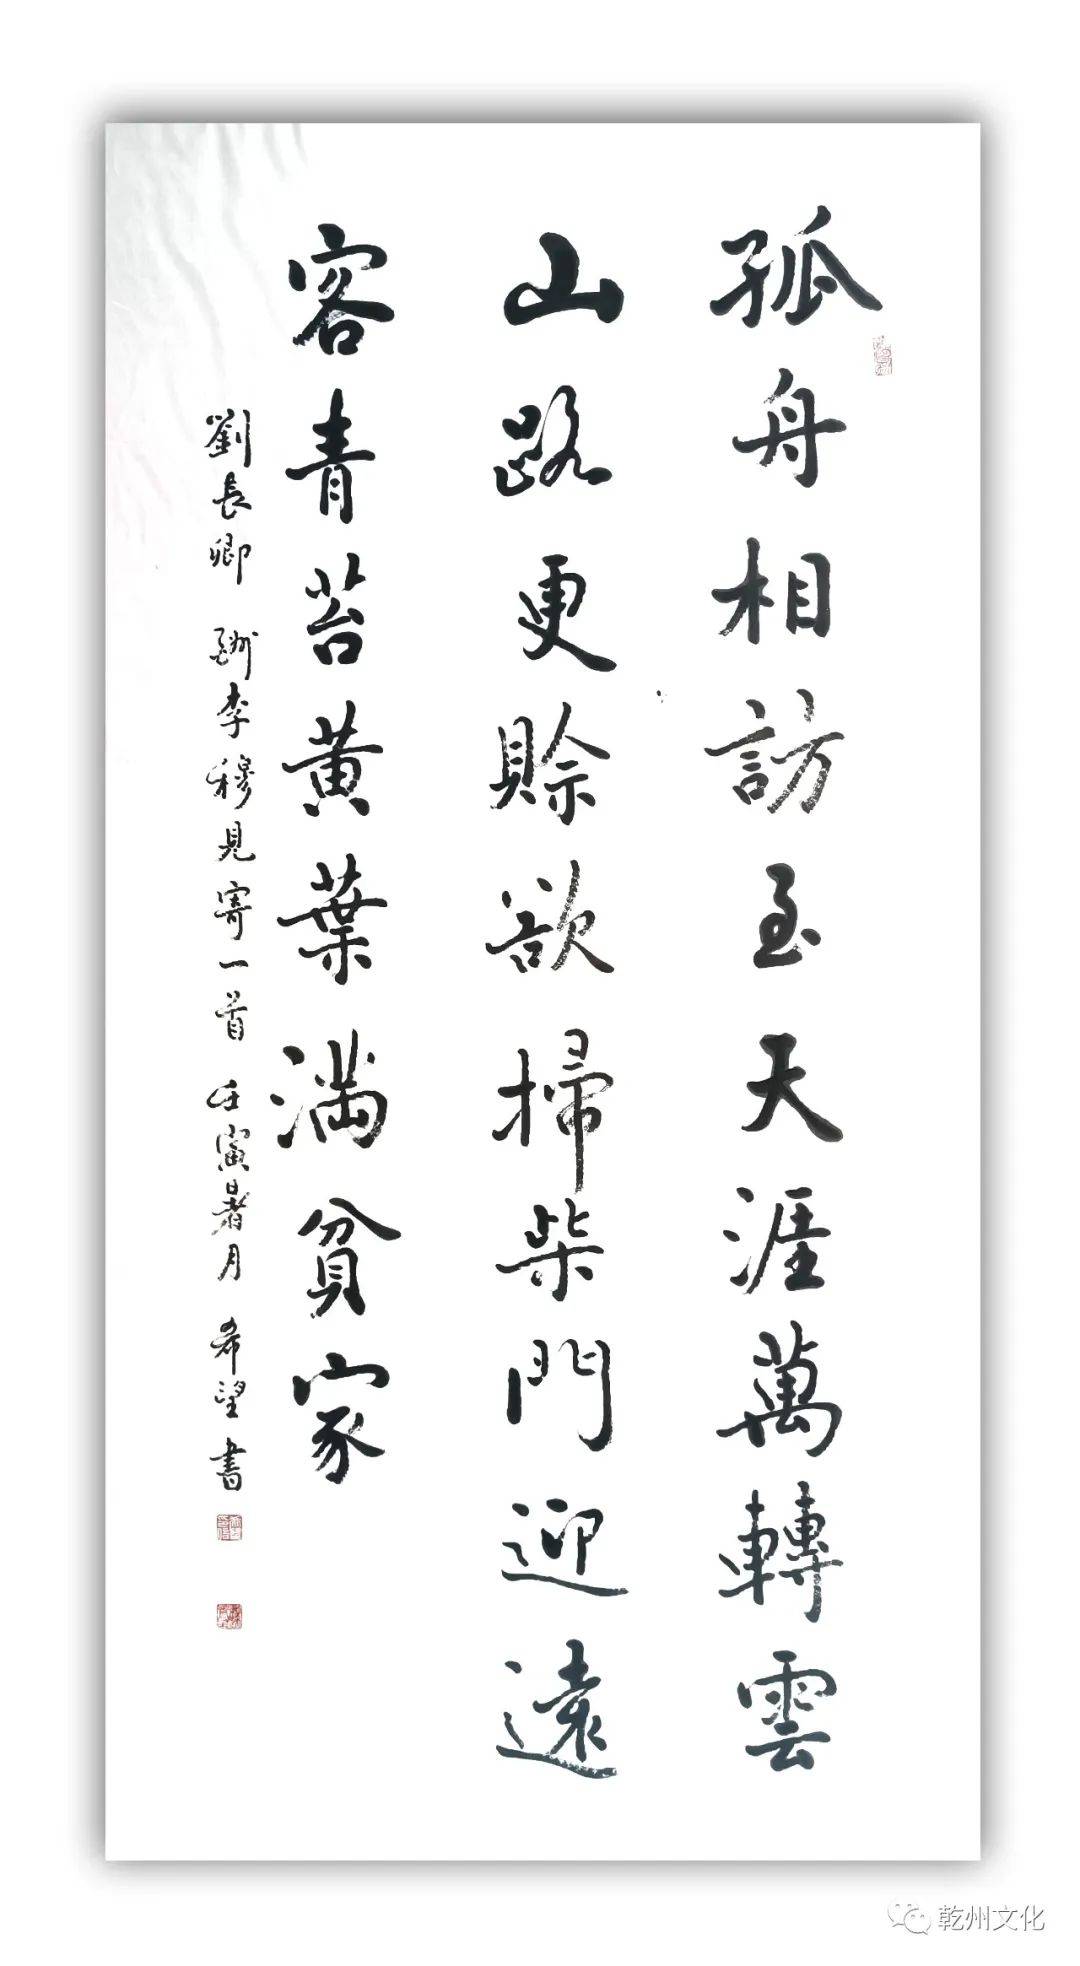 孤舟相訪至天涯萬轉雲
山路更賒欲掃柴門迎遠
客青苔黄葉滿貧家
劉長卿 酬李穆見寄一首 壬寅暑月 希望書
乾州文化